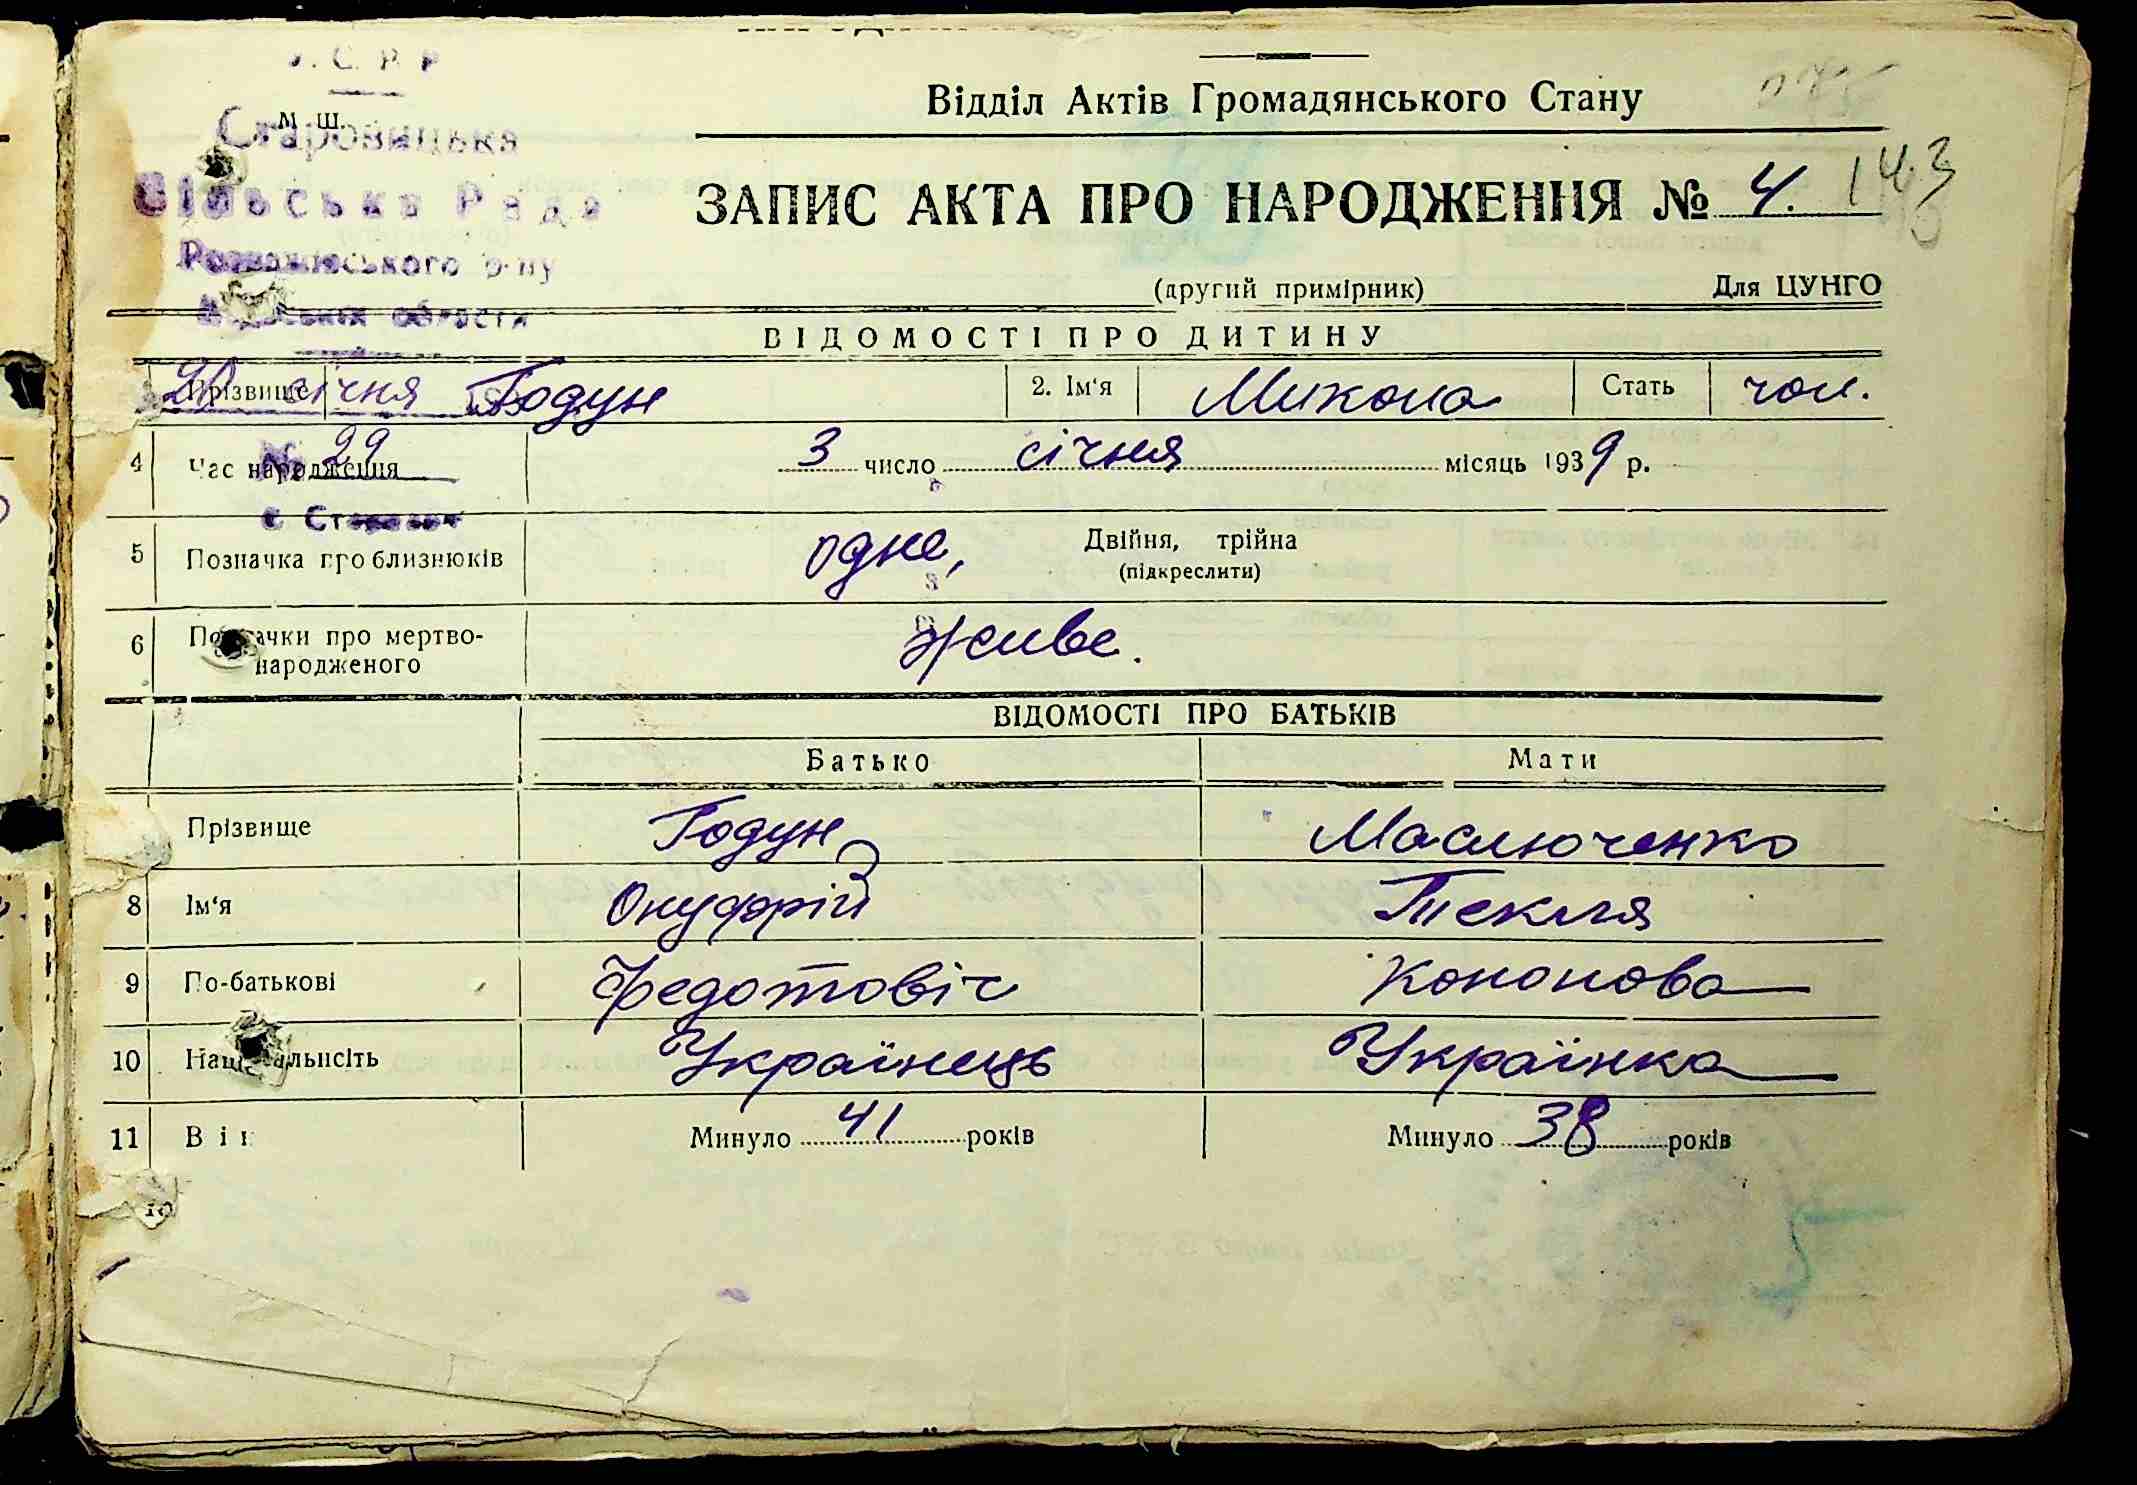 У. С. Р. Р
Відділ Актів Громадянського Стану
М. Ш.
Старовицька
Сільська Рада
ЗАПИС АКТА ПРО НАРОДЖЕННЯ № 4.
143
Розважівського р-ну
області
(другий примірник) Для ЦУНГО
ВІДОМОСТІ ПРО ДИТИНУ
20 січня
Прізвище Годун 2. Ім'я Микола Стать чол.
№ 29
4 Час народження 3 число січня місяць 1939 р.
с.
5 Позначка про близнюків одне, Двійня, трійна
(підкреслити)
6 Позначки про мертво-
народженого живе.
ВІДОМОСТІ ПРО БАТЬКІВ
Батько Мати
Прізвище Годун Маслюченко
8 Ім'я Онуфрій Текля
9 По-батькові Федотовіч Кононова
10 Національність Українець Українка
11 Вік Минуло 41 років Минуло 38 років